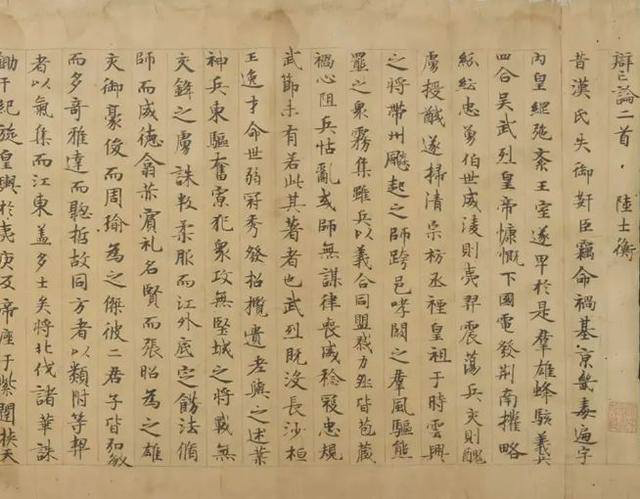 辯亡論二首，陸士衡
昔漢氏失御奸臣竊命禍基京畿毒遍宇
内皇綱弛紊王室遂卑於是羣雄蜂駭義兵
四合吴武烈皇帝慷慨下國電發荆南權略
紛紜忠勇伯世威淩則夷羿震蕩兵交則醜
虜授馘遂掃清宗祊丞禋皇祖于時雲興
之將帶州飈起之師跨邑哮闞之羣風驅熊
羆之衆霧集雖兵以義合同盟戮力然皆苞藏
禍心阻兵怙亂或師無謀律喪威稔寇忠規
武節未有若此其著者也武烈既没長沙桓
王逸才命世弱冠秀發招攬遺老與之述業
神兵東驅奮寡犯衆攻無堅城之將戰無
交鋒之虜誅叛柔服而江外底定飭法脩
師而威德翕赫賓礼名賢而張昭為之雄
交御豪俊而周瑜為之傑彼二君子皆弘敏
而多奇雅達而聡哲故同方者以類附等契
者以氣集而江東盖多士矣將北伐諸華誅
鋤干紀旋皇輿於夷庚反帝座于紫闥挾天